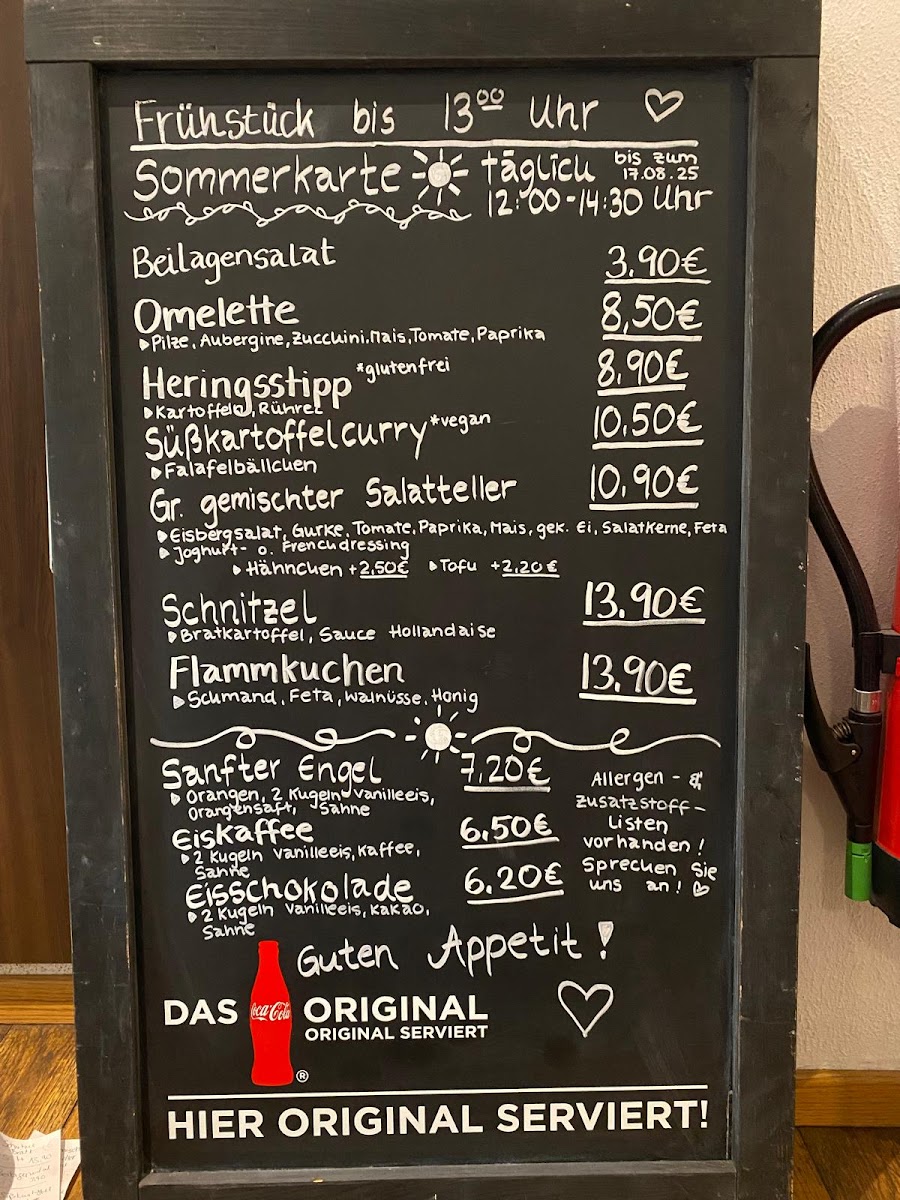 Frühstück bis 13⁰⁰ Uhr
Sommerkarte täglich bis zum
17.08.25
12:00-14:30 Uhr
Beilagensalat 3.90€
Omelette 8,50€
Pilze, Aubergine, Zucchini, Mais, Tomate, Paprika
Heringsstipp *glutenfrei 8.90€
Kartoffeln, Rührei
Süßkartoffelcurry *vegan 10.50€
Falafelbällchen
Gr. gemischter Salatteller 10.90€
Eisbergsalat, Gurke, Tomate, Paprika, Mais, gek. Ei, Salatkerne, Feta
Joghurt- o. Frenchdressing
Hähnchen +2,50€ Tofu +2,20€
Schnitzel 13.90€
Bratkartoffel, Sauce Hollandaise
Flammkuchen 13.90€
Schmand, Feta, Walnüsse, Honig
Sanfter Engel 7.20€
Orangen, 2 Kugeln Vanilleeis,
Orangensaft, Sahne
Eiskaffee 6.50€
2 Kugeln Vanilleeis, Kaffee,
Sahne
Eisschokolade 6.20€
2 Kugeln Vanilleeis, Kakao,
Sahne
Allergen- &
Zusatzstoff-
Listen
vorhanden!
Sprechen Sie
uns an!
Guten Appetit!
DAS Coca-Cola ORIGINAL
ORIGINAL SERVIERT
®
HIER ORIGINAL SERVIERT!